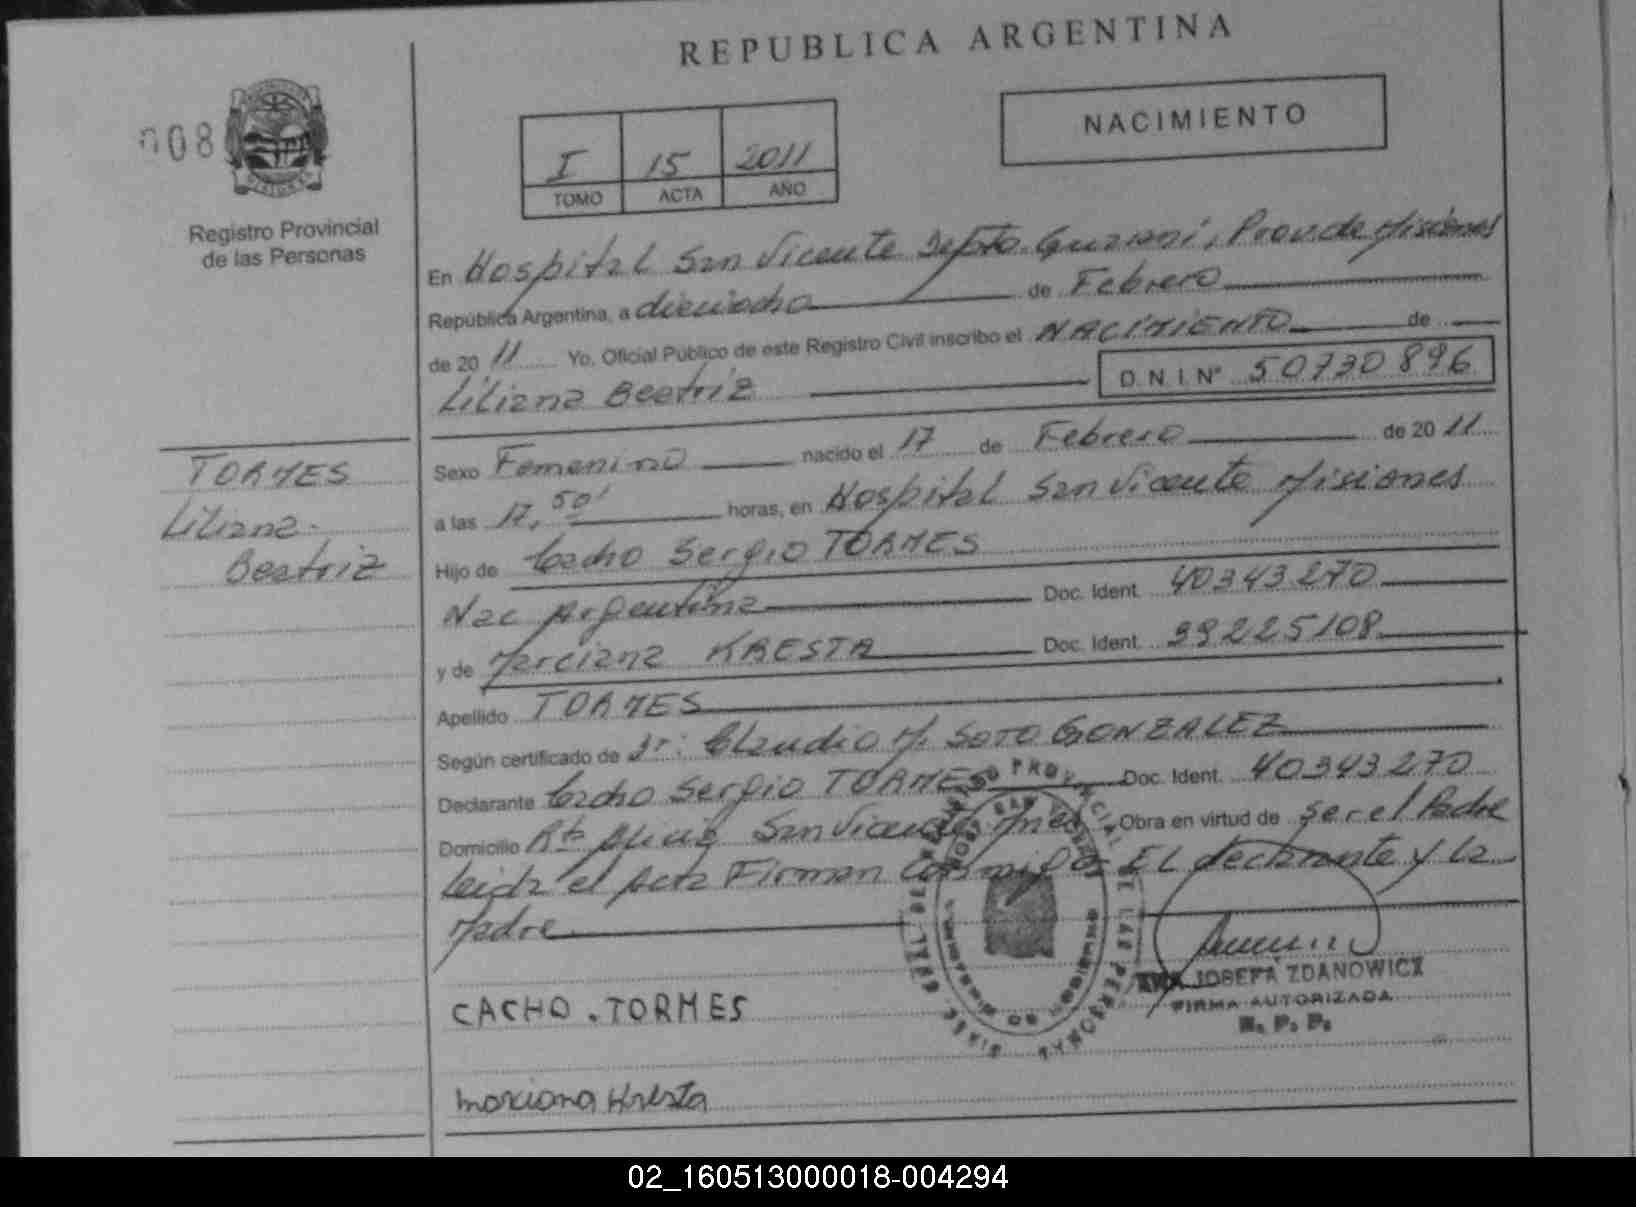 REPUBLICA ARGENTINA
NACIMIENTO
008
I 15 2011
TOMO ACTA AÑO
Registro Provincial
de las Personas
En Hospital San Vicente Depto. Guarani, Prov. de Misiones
República Argentina, a dieciocho de Febrero
de 2011 Yo, Oficial Público de este Registro Civil inscribo el NACIMIENTO de
Liliana Beatriz D. N. I. N° 50730896
TORMES
Liliana
Beatriz
Sexo Femenino nacido el 17 de Febrero de 2011
a las 17,50' horas, en Hospital San Vicente Misiones
Hijo de Cacho Sergio TORMES
Nac Argentina Doc. Ident. 40343270
y de Marciana KRESTA Doc. Ident. 39225108
Apellido TORMES
Según certificado de Dr: Claudio M. SOTO GONZALEZ
Declarante Cacho Sergio TORMES Doc. Ident. 40343270
Domicilio San Vicente Mnes Obra en virtud de ser el Padre
Leida el Acta Firman Conmigo El declarante y la
Madre
JOSEFA ZDANOWICZ
FIRMA AUTORIZADA
R. P. P.
CACHO . TORMES
Marciana Kresta
02_160513000018-004294